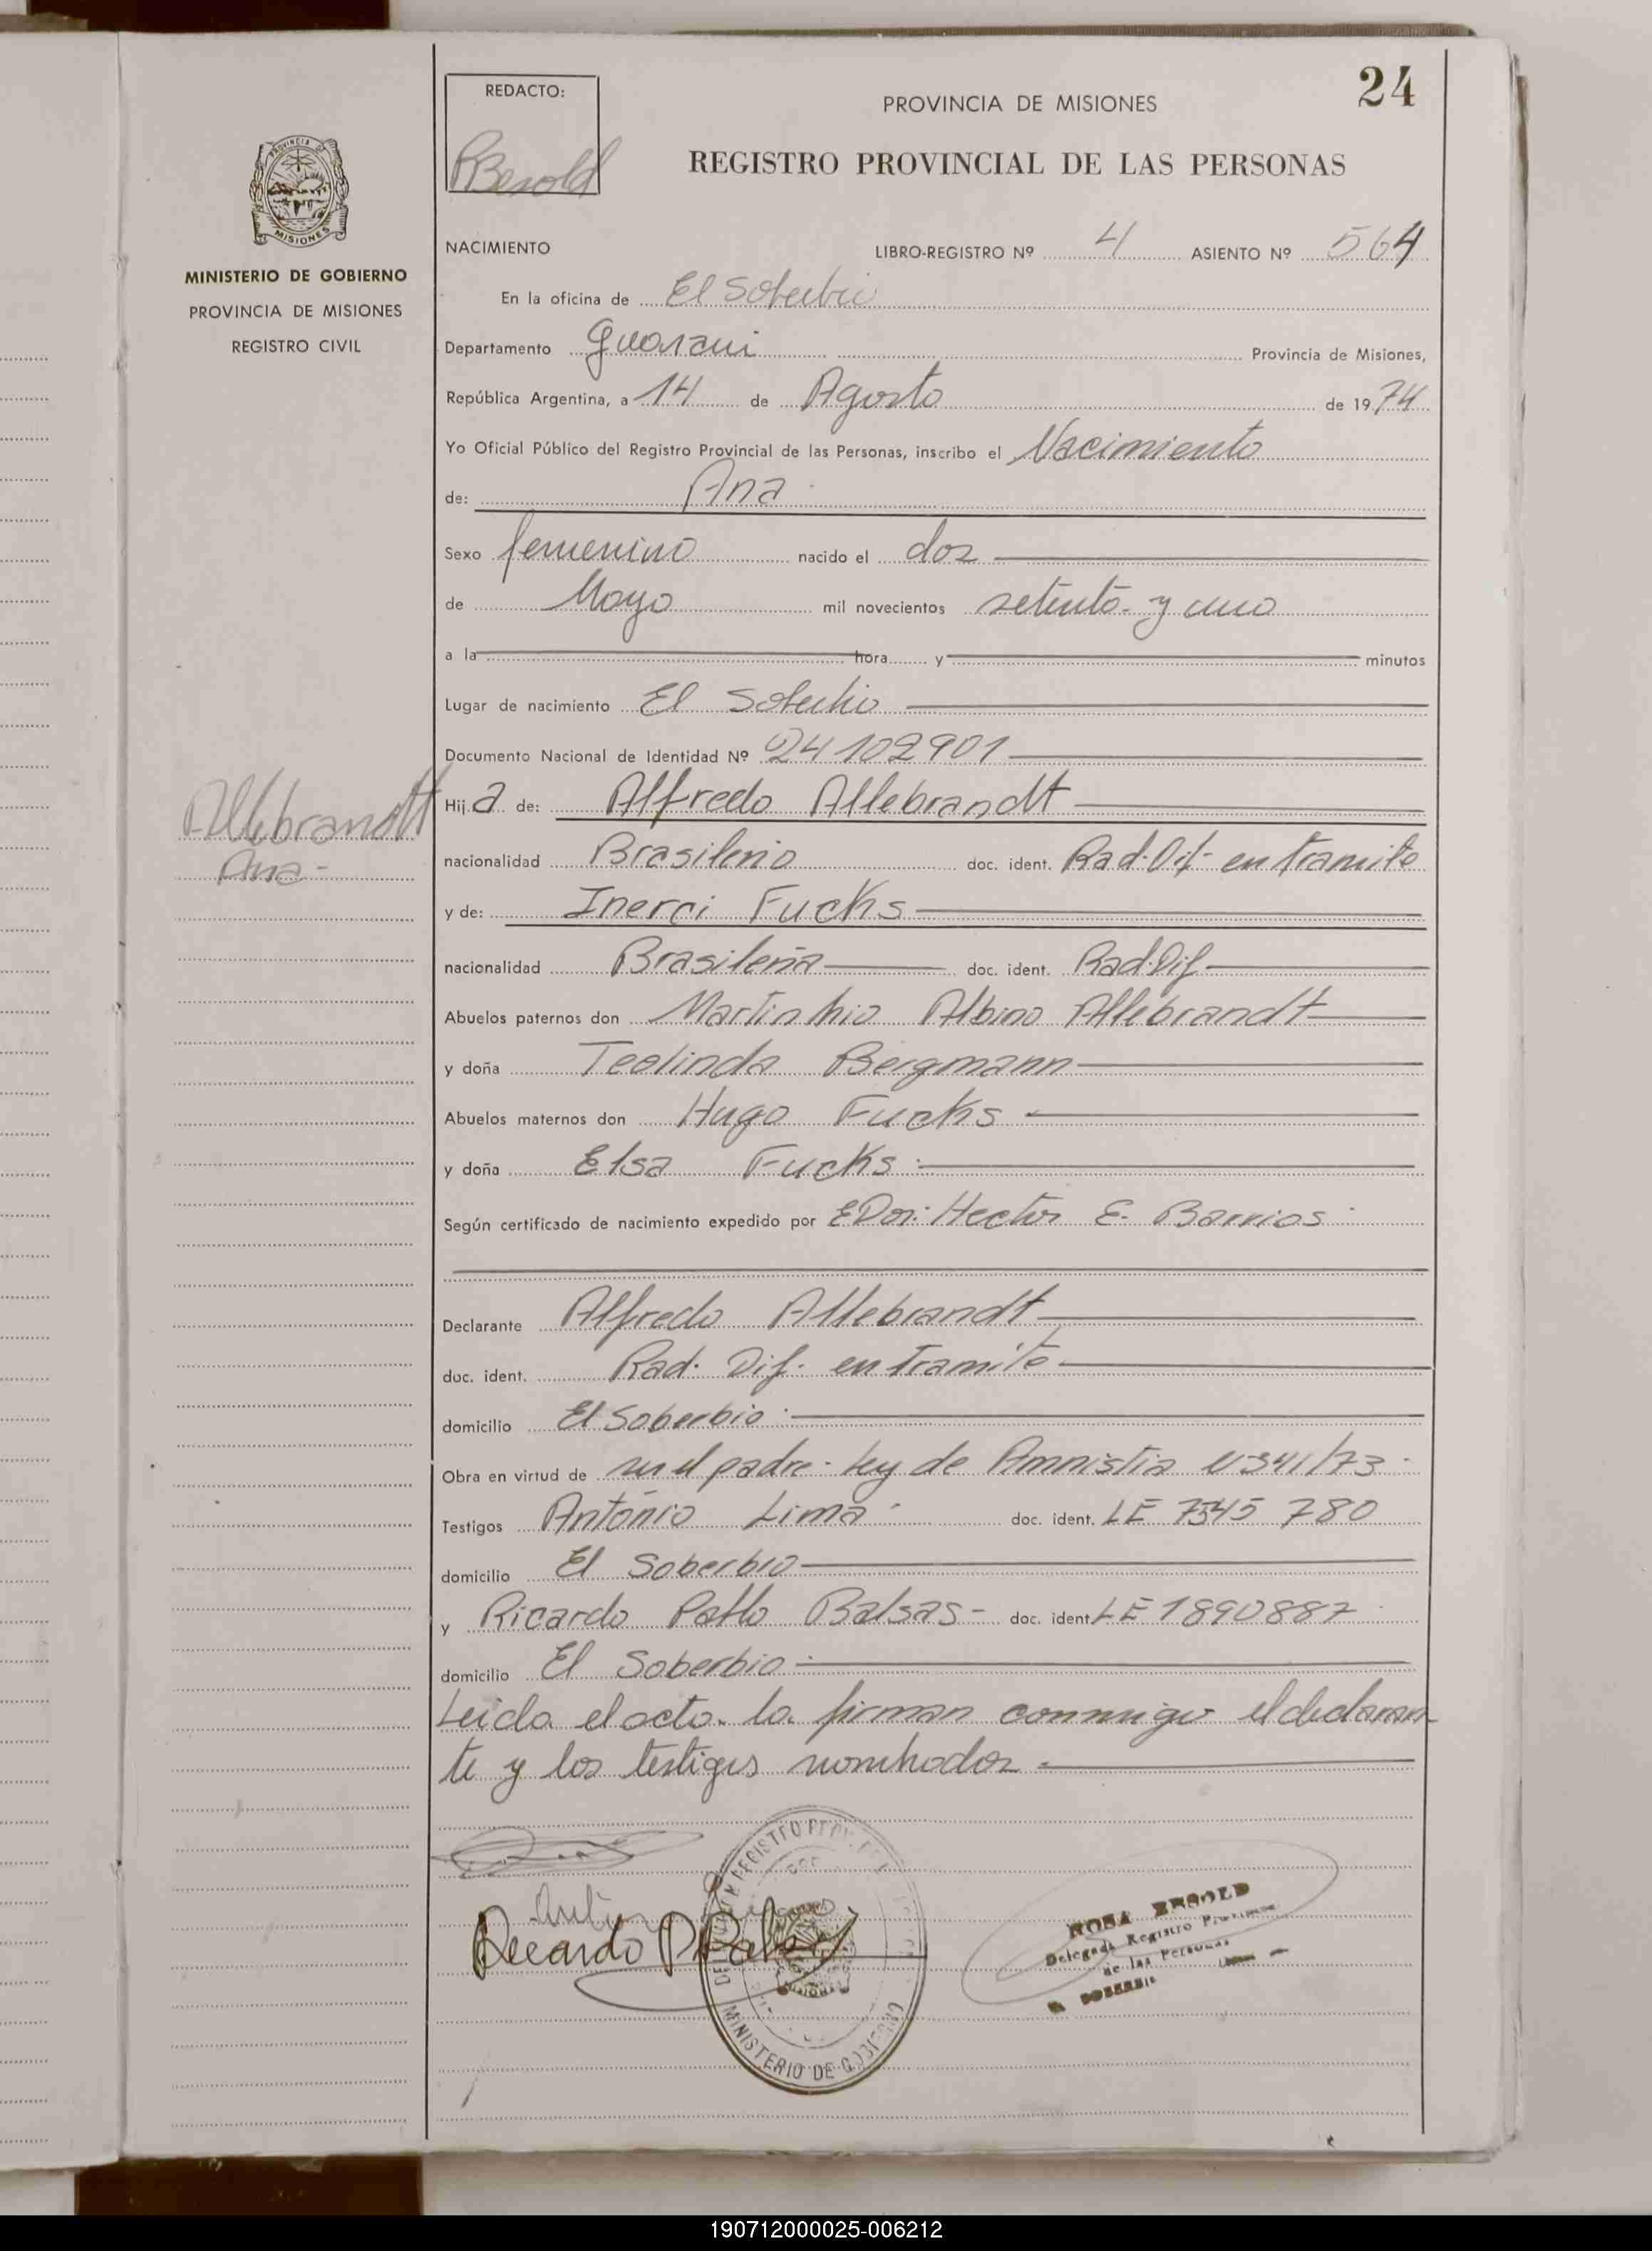 24
REDACTO:
RBesold
PROVINCIA DE MISIONES
REGISTRO PROVINCIAL DE LAS PERSONAS
PROVINCIA DE
MISIONES
MINISTERIO DE GOBIERNO
PROVINCIA DE MISIONES
REGISTRO CIVIL
NACIMIENTO LIBRO-REGISTRO Nº 4 ASIENTO Nº 564
En la oficina de El Soberbio
Departamento Guarani Provincia de Misiones,
República Argentina, a 14 de Agosto de 1974
Yo Oficial Público del Registro Provincial de las Personas, inscribo el Nacimiento
de: Ana
Sexo femenino nacido el dos
de Mayo mil novecientos setenta y uno
a la hora y minutos
Lugar de nacimiento El Soberbio
Documento Nacional de Identidad Nº 24102901
Allebrandt
Ana -
Hija de: Alfredo Allebrandt
nacionalidad Brasileño doc. ident. Rad. Dif- en tramite
y de: Inerci Fucks
nacionalidad Brasileña doc. ident. Rad. Dif
Abuelos paternos don Martinhio Albino Allebrandt
y doña Teolinda Bergmann
Abuelos maternos don Hugo Fucks
y doña Elsa Fucks
Según certificado de nacimiento expedido por Hector E. Barrios
Declarante Alfredo Allebrandt
doc. ident. Rad. Dif. en tramite
domicilio El Soberbio
Obra en virtud de ser el padre - Ley de Amnistia
Testigos António Lima doc. ident. LE 780
domicilio El Soberbio
y Ricardo Pablo Balsas - doc. ident LE 1890887
domicilio El Soberbio
Leida el acta la firman conmigo el declaran
te y los testigos nombrados
REGISTRO
MINISTERIO DE GOBIERNO
ROSA BESOLD
Delegada Registro Provincial
de las Personas
EL SOBERBIO
190712000025-006212